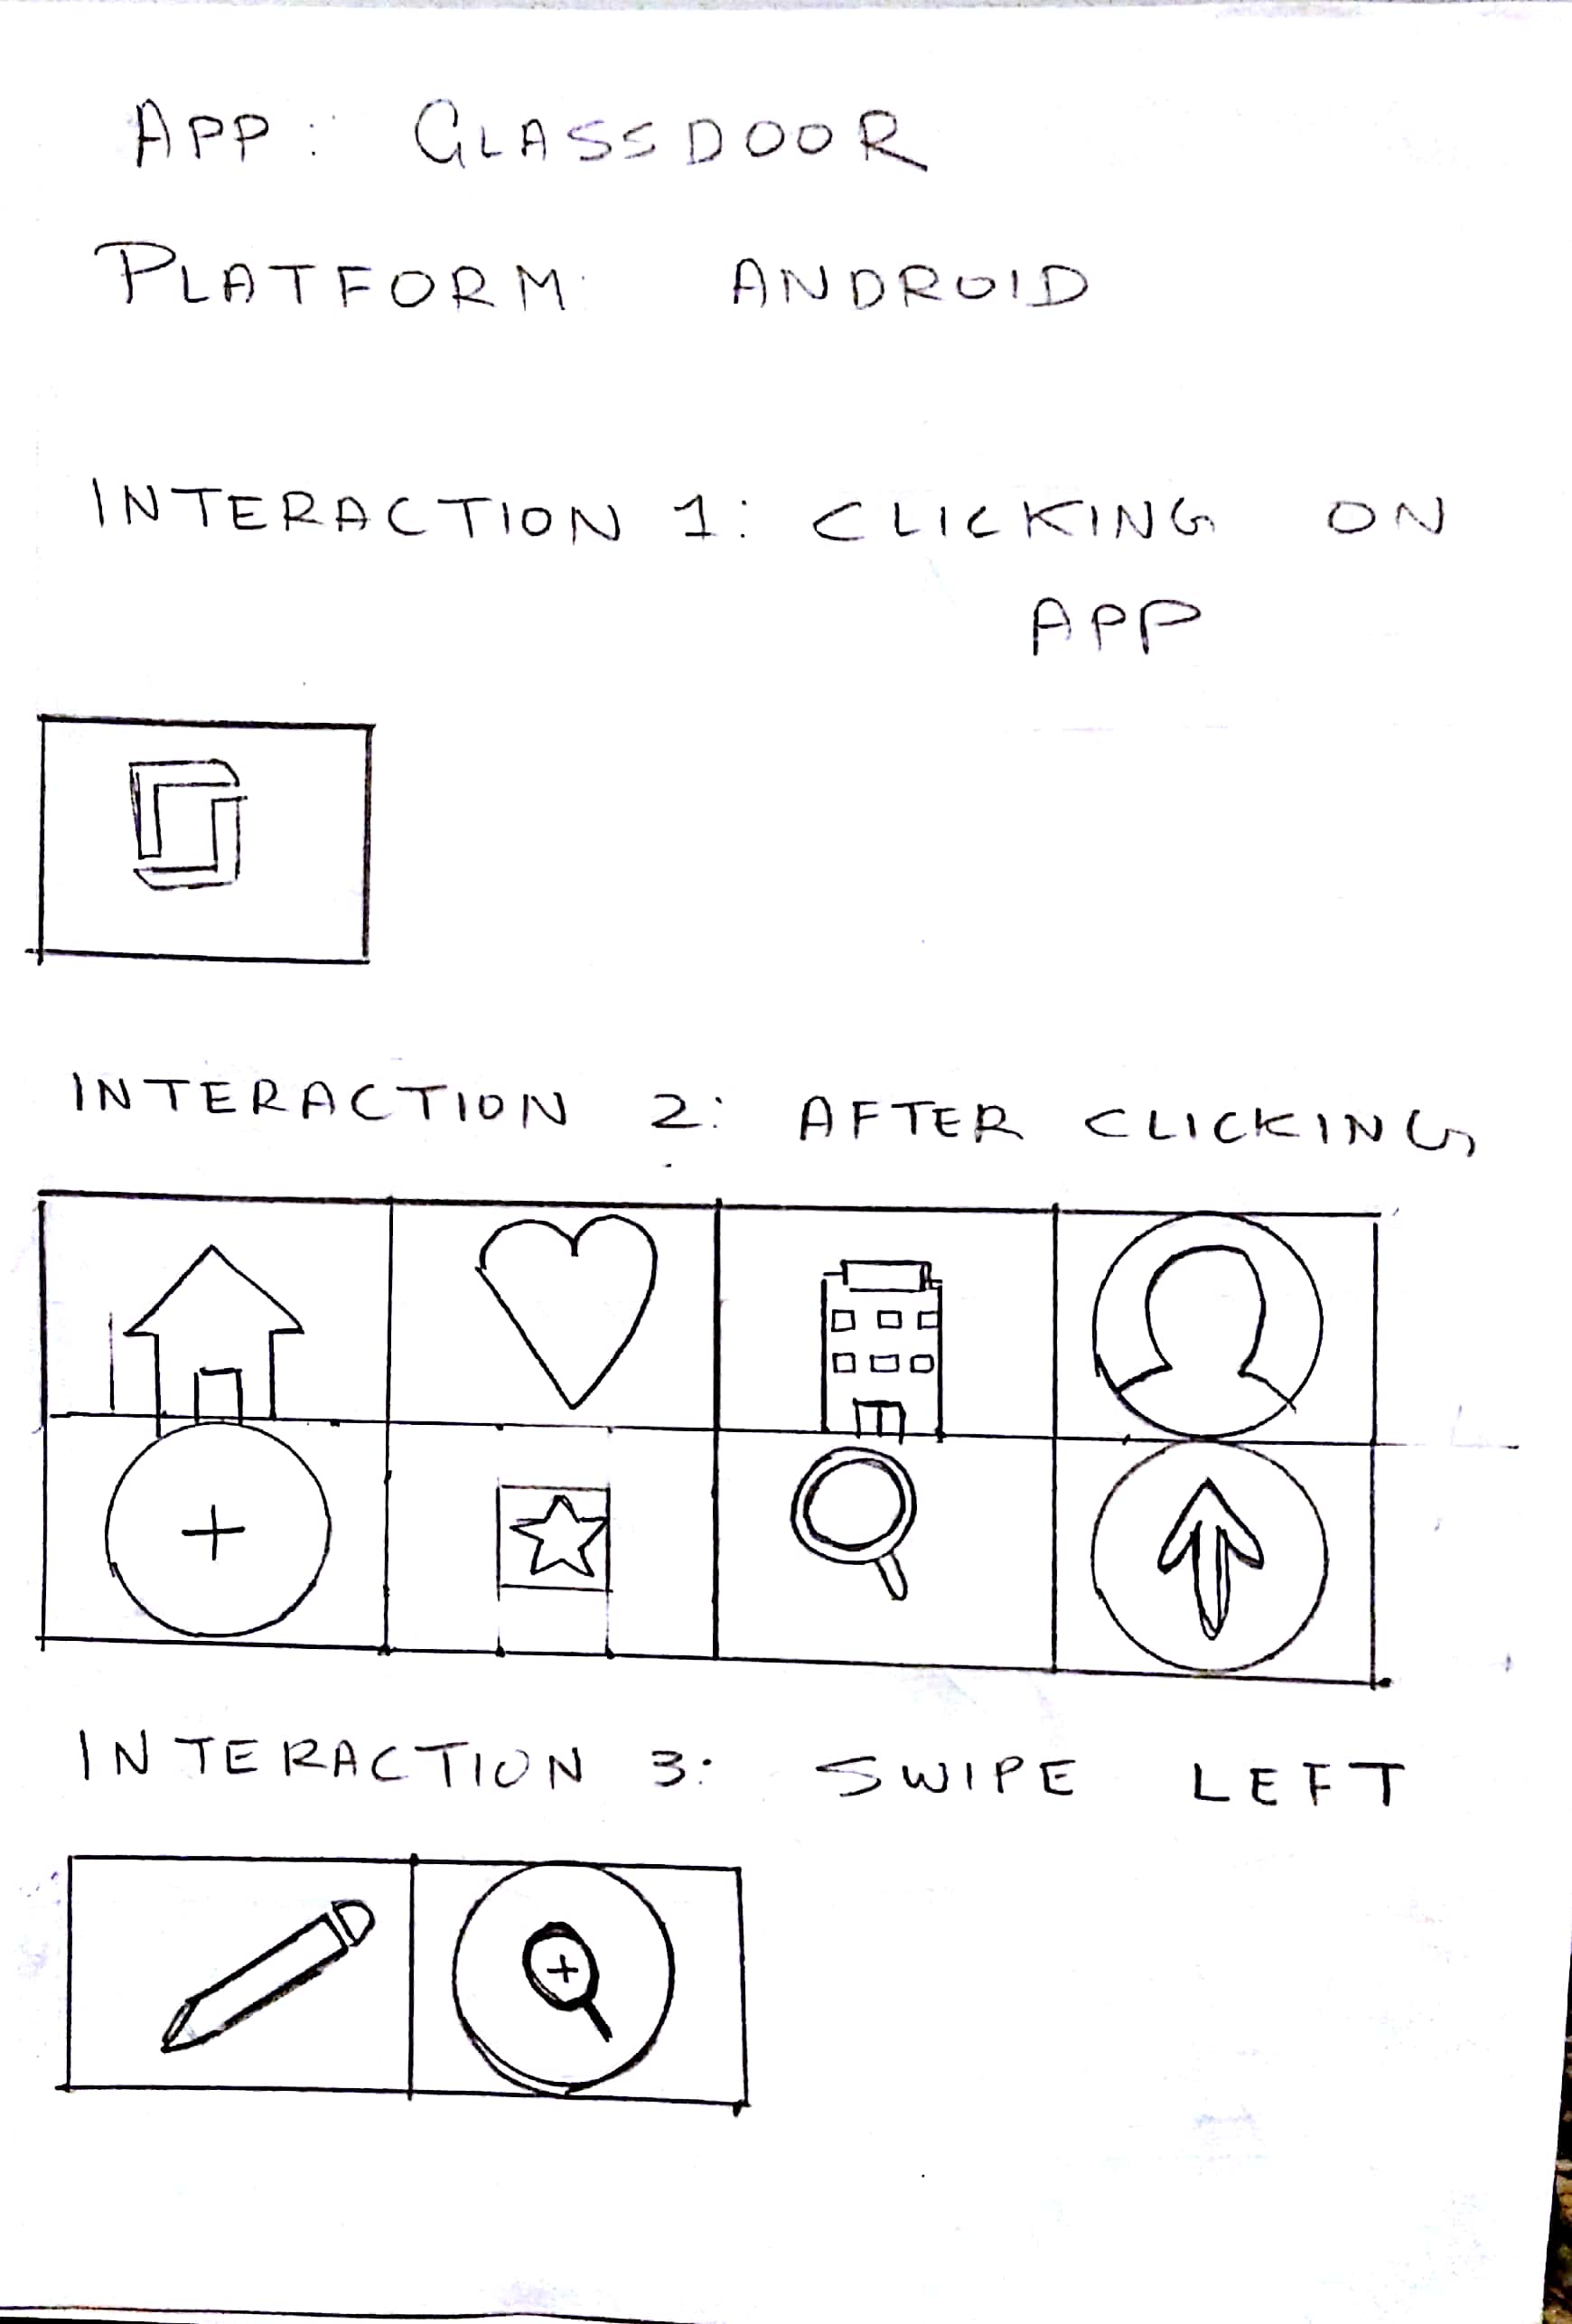 APP: GLASSDOOR
PLATFORM: ANDROID
INTERACTION 1: CLICKING ON
APP
INTERACTION 2: AFTER CLICKING
INTERACTION 3: SWIPE LEFT